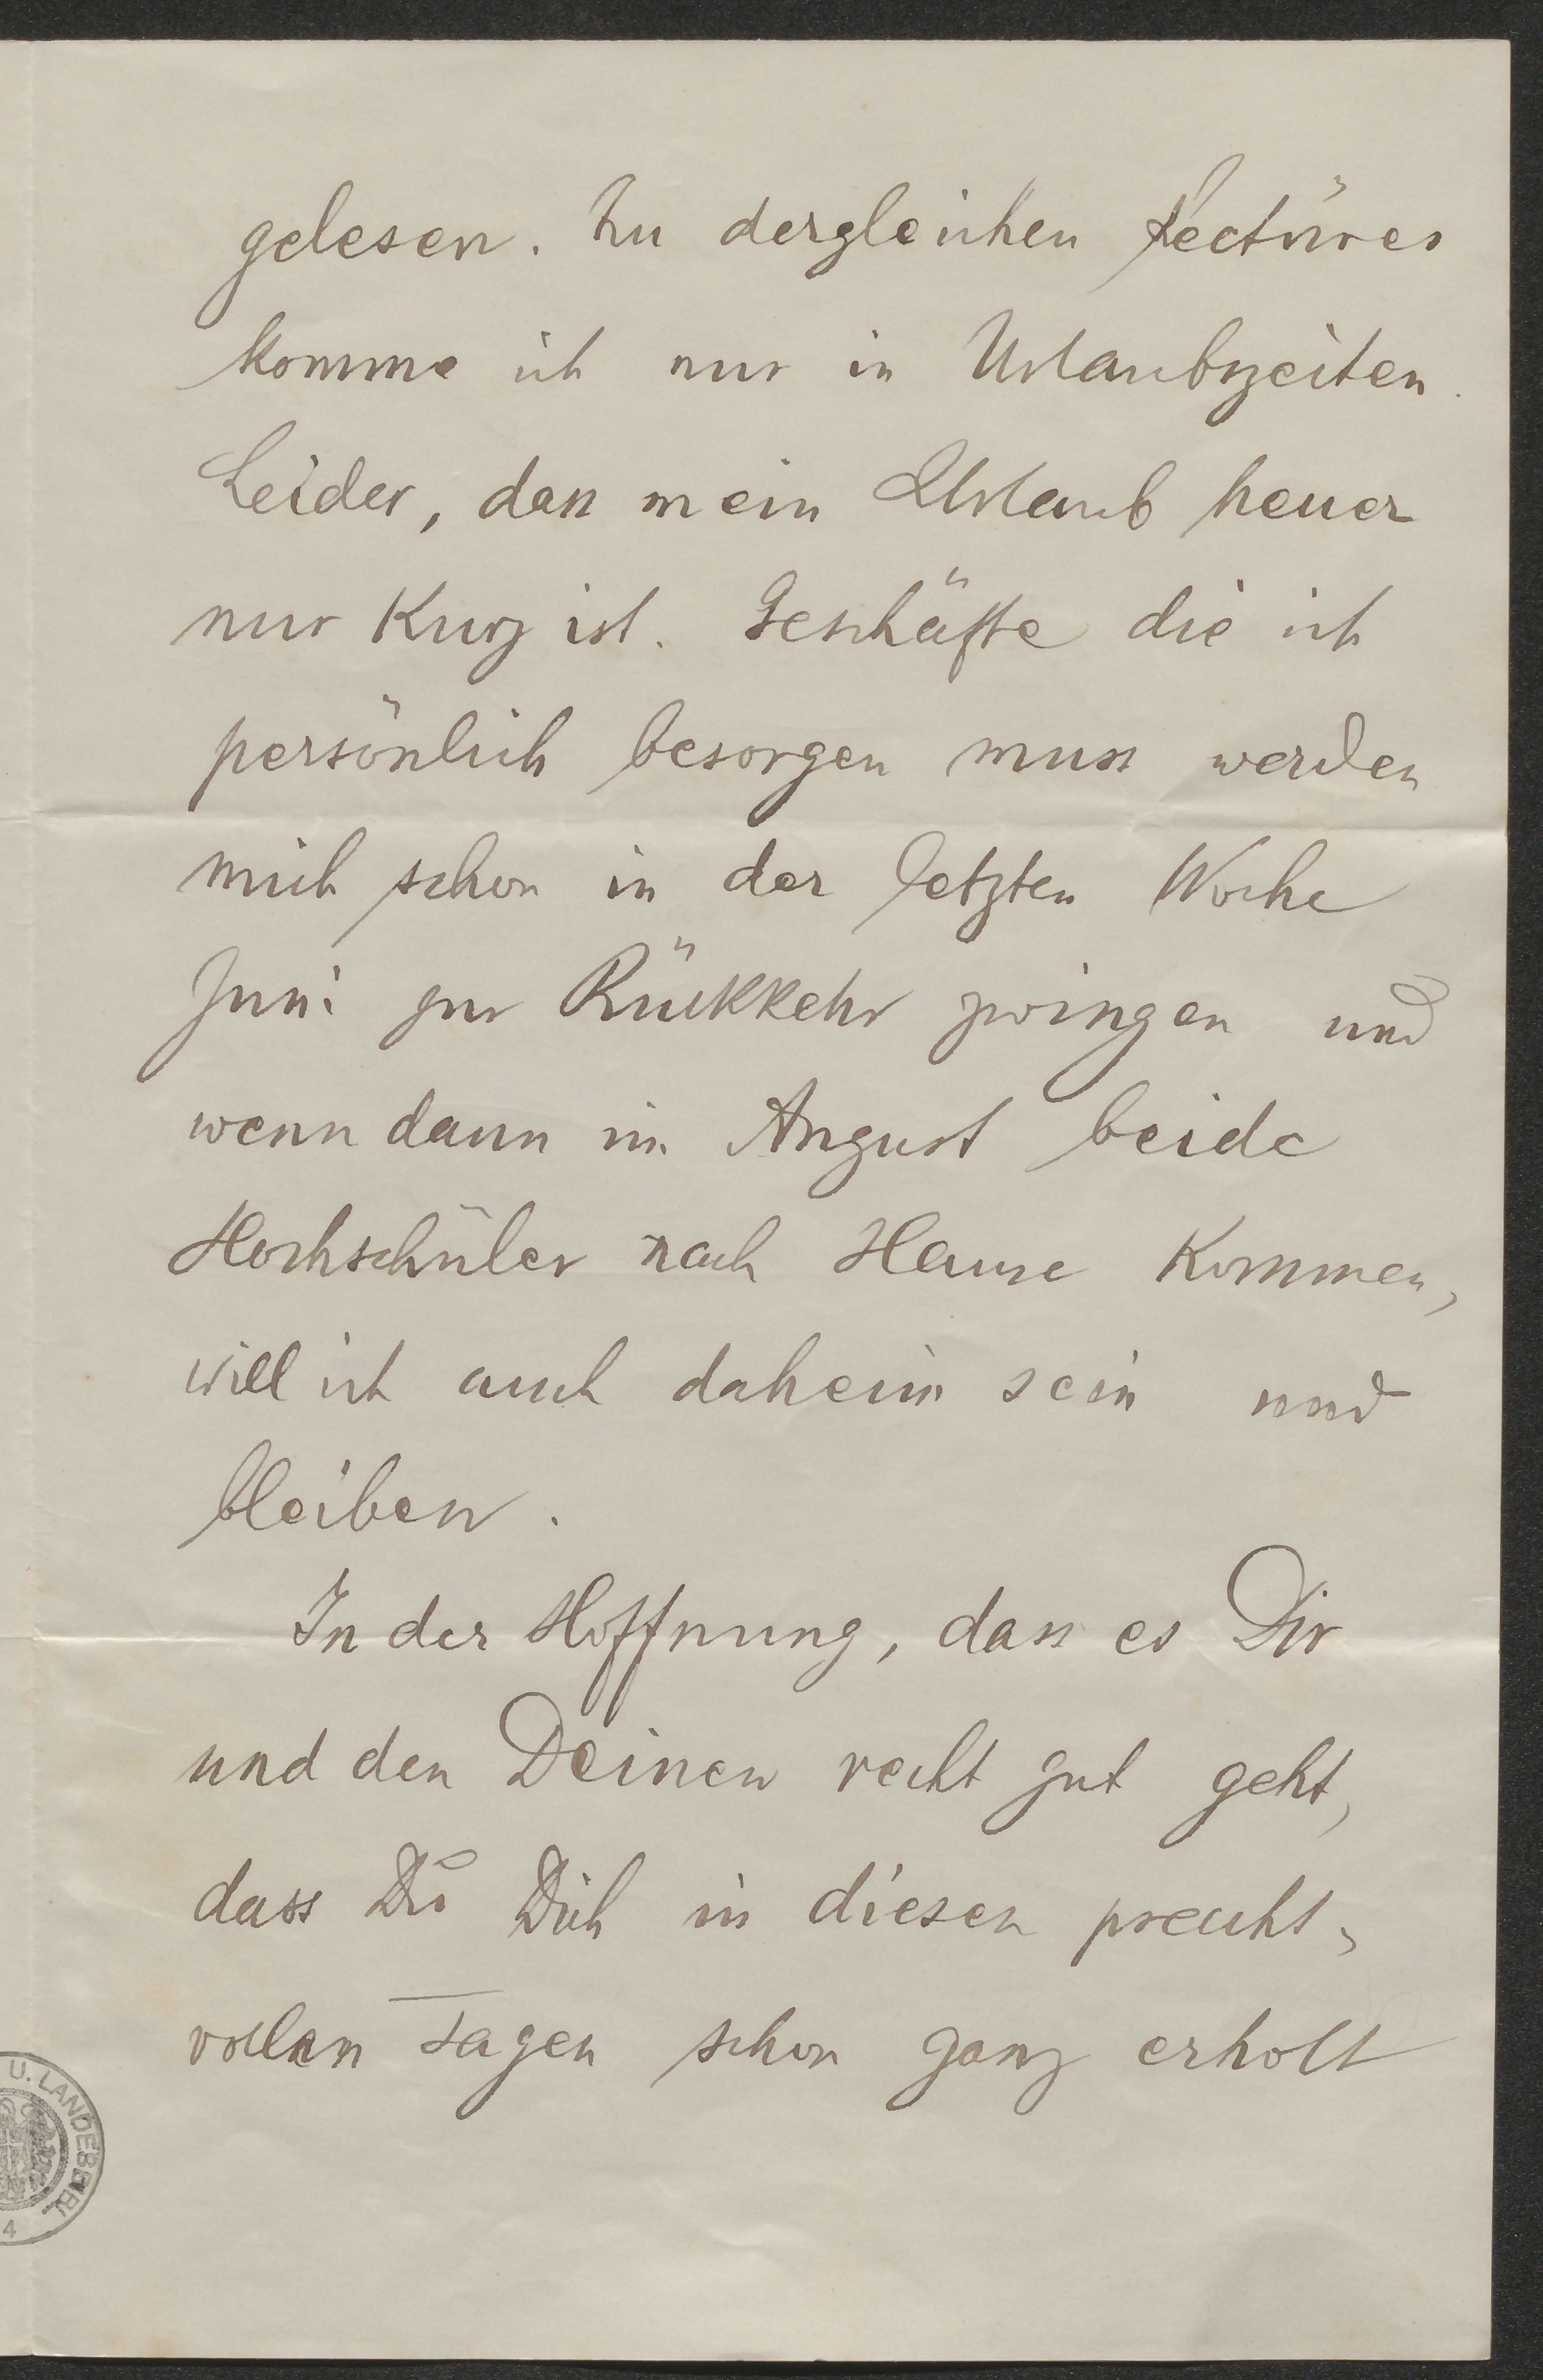 gelesen. Zu dergleichen Lectüres
komme ich nur in Urlaubszeiten.
Leider, dass mein Urlaub heuer
nur kurz ist. Geschäfte die ich
persönlich besorgen muss werden
mich schon in der letzten Woche
Juni zur Rückkehr zwingen und
wenn dann im August beide
Hochschüler nach Hause kommen,
will ich auch daheim sein und
bleiben.
In der Hoffnung, dass es Dir
und den Deinen recht gut geht,
dass Du Dich in diesen pracht-
vollen Tagen schon ganz erholt
U. LANDESBIBL.
4